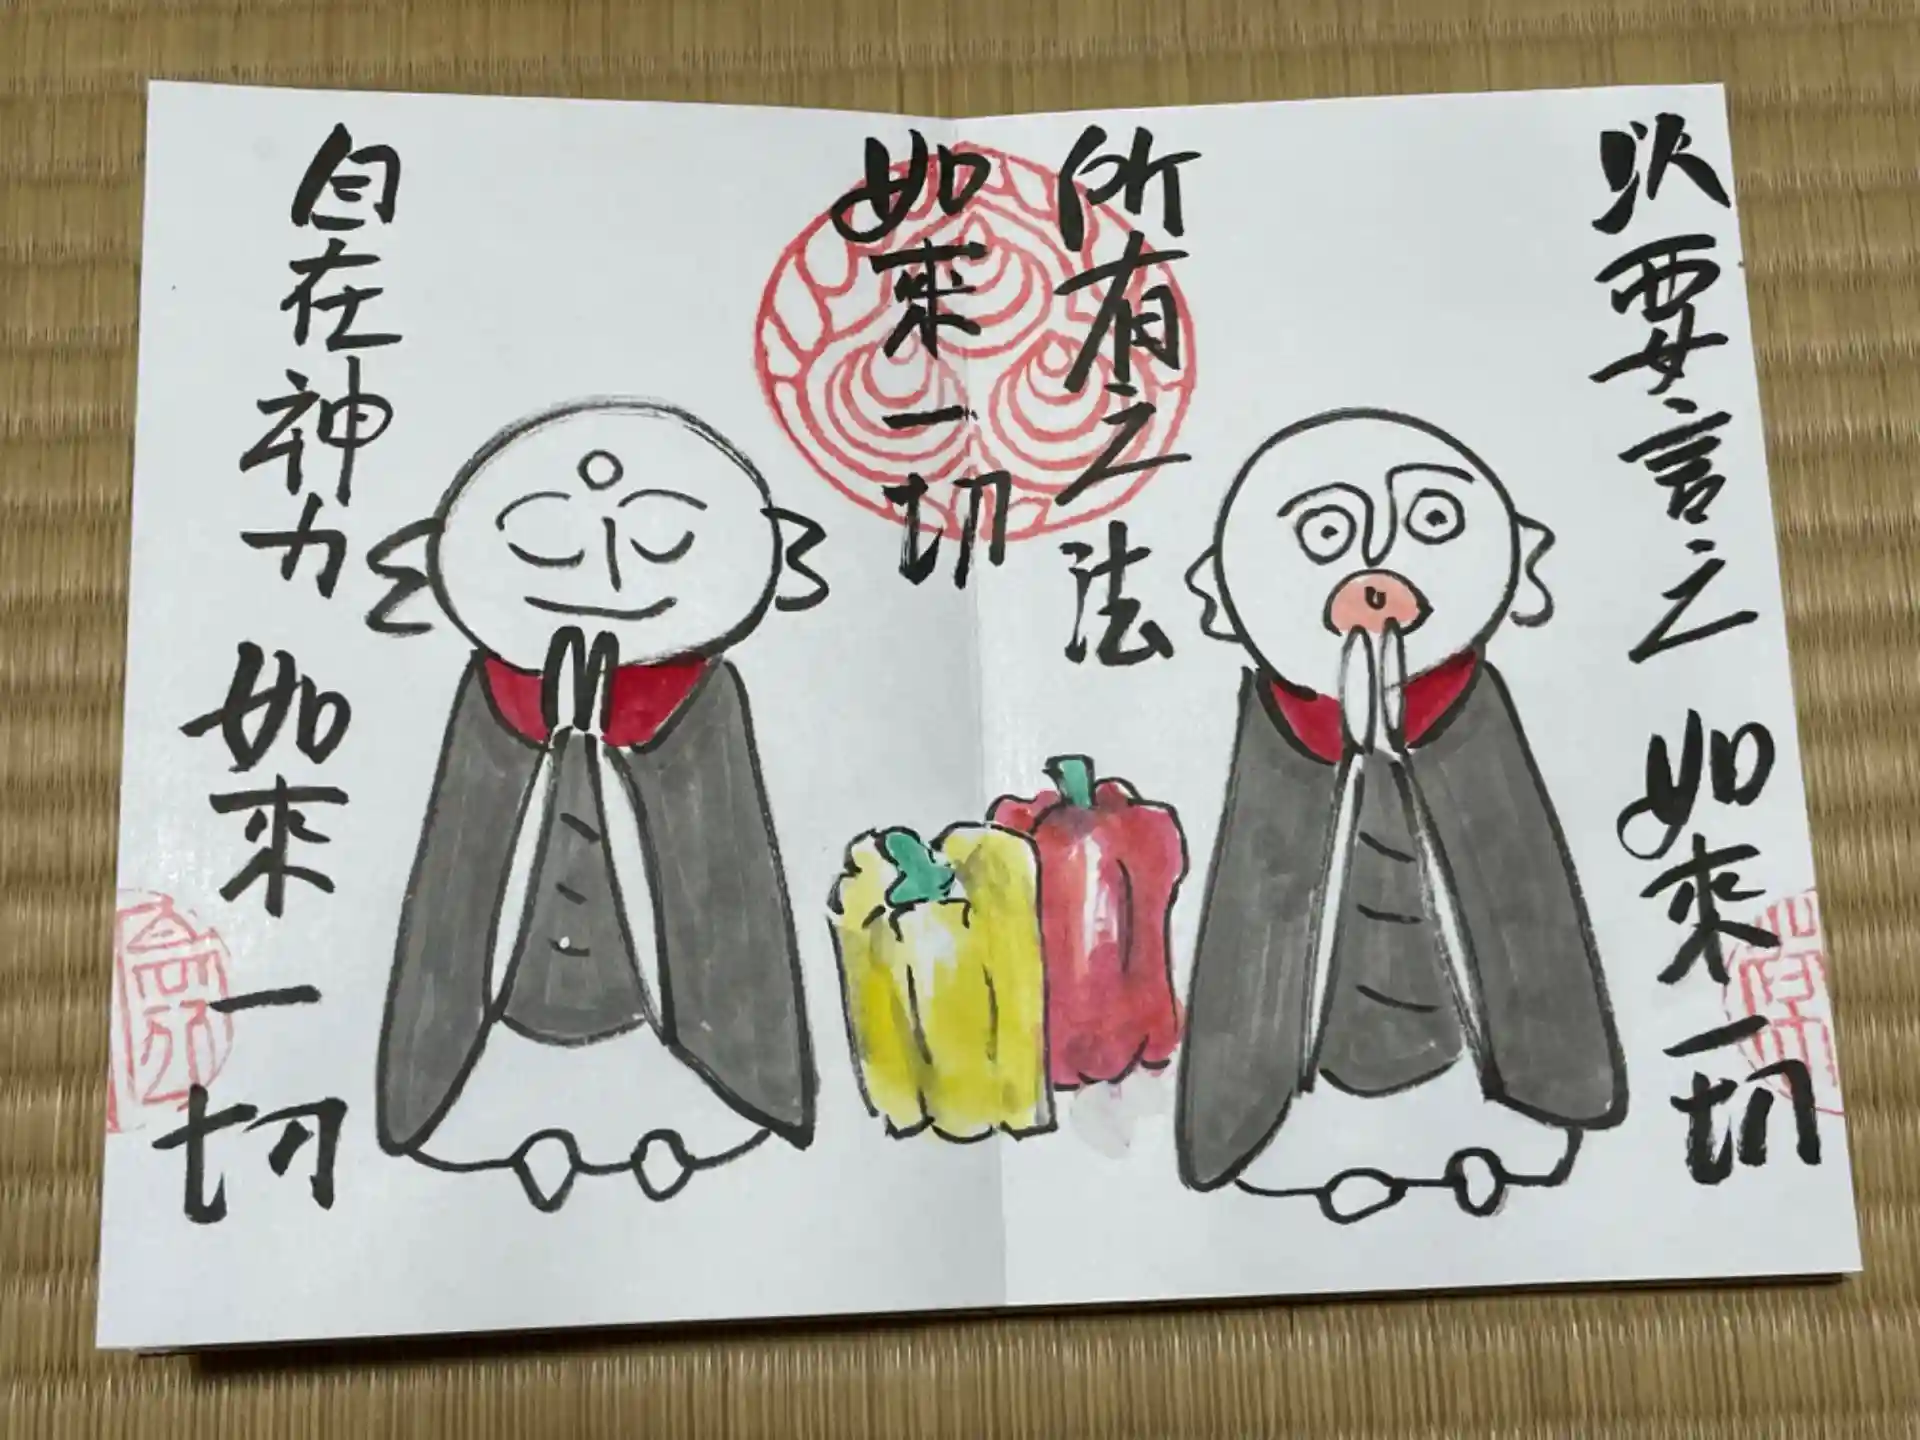 以要言之 如来一切
所有之法
如来一切
自在神力 如来一切